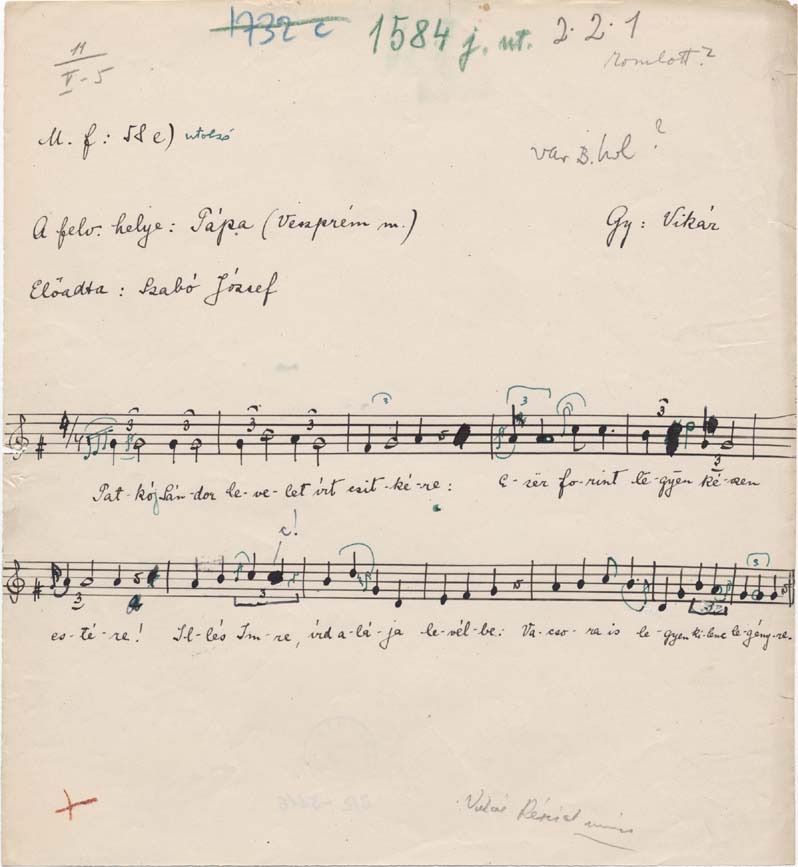 1732 c 1584 j. ut. 2.2.1
11
V-5
romlott?
M. f: 58 e) utolsó
var B. hol ?
A felv. helye: Pápa (Veszprém m.) Gy: Vikár
Előadta: Szabó József
4/4 3 3 3 3 3 3 3 3
Pat-kó Sán-dor le-ve-let irt csit-ké-re: E-zër fo-rint lë-gyën ké-szen
c!
3 3 3
es-té-re! Il-lés Im-re, írd a-lá-ja le-vél-be: Va-cso-ra is le-gyen ki-lenc le-gény-re.
Vikár